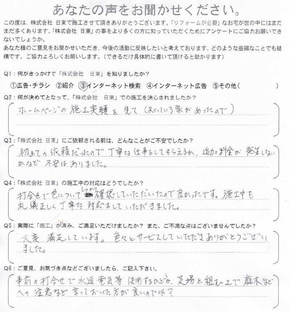 あなたの声をお聞かせください。
この度は、株式会社 日東で施工させて頂きありがとうございます。「リフォームが必要」なお宅が世の中にはまだ
まだ多くあります。「株式会社 日東」の事をより多くの方に知っていただくためにアンケートにご協力お願いできな
いでしょうか。
あなた様のご意見をお聞かせいただき、今後の活動に反映したいと考えております。どのような些細なことでも結
構です。ご協力お願いします。(できるだけ具体的に書いて頂けると助かります)
Q1:何がきっかけで「株式会社 日東」を知りましたか?
①広告・チラシ ②紹介 ③インターネット検索 ④インターネット広告 ⑤その他( )
Q2:何が決めてとなって、「株式会社 日東」での施工を決されましたか?
ホームページの施工実績を見て(知っている家があったので)
Q3:「株式会社 日東」にご依頼される前は、どんなことがご不安でしたか?
初めての依頼だったので丁寧な仕事をしてもらえるか、追加料金が発生しな
いかなど不安はありました。
Q4:「株式会社 日東」の施工中の対応はどうでしたか?
打合せで色について確認していただいたので良かったです。施工中も
礼儀正しく丁寧な対応をしていただきました。
Q5:実際に「施工」が済み、ご満足いただけましたか? また、ご不満な点はございませんでしたか?
大変満足しています。色々とサービスしていただきありがとうござい
ました。
Q6:ご意見、お気づき点などございましたら、ご記入下さい。
事前の打合せで水道電気等使用するかどうか、足場を組む上で庭木など
への注意など言っておいた方が良いのでは?